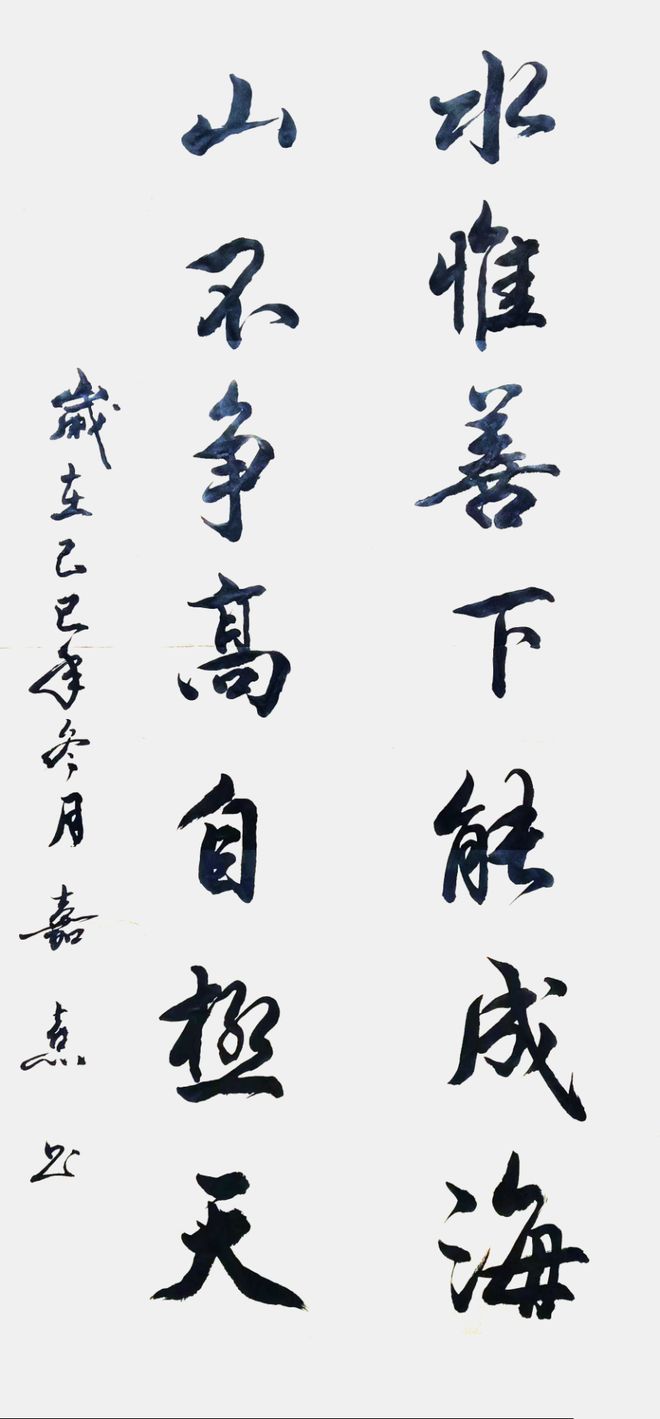 水惟善下能成海
山不争高自极天
岁在己巳年冬月嘉熹书